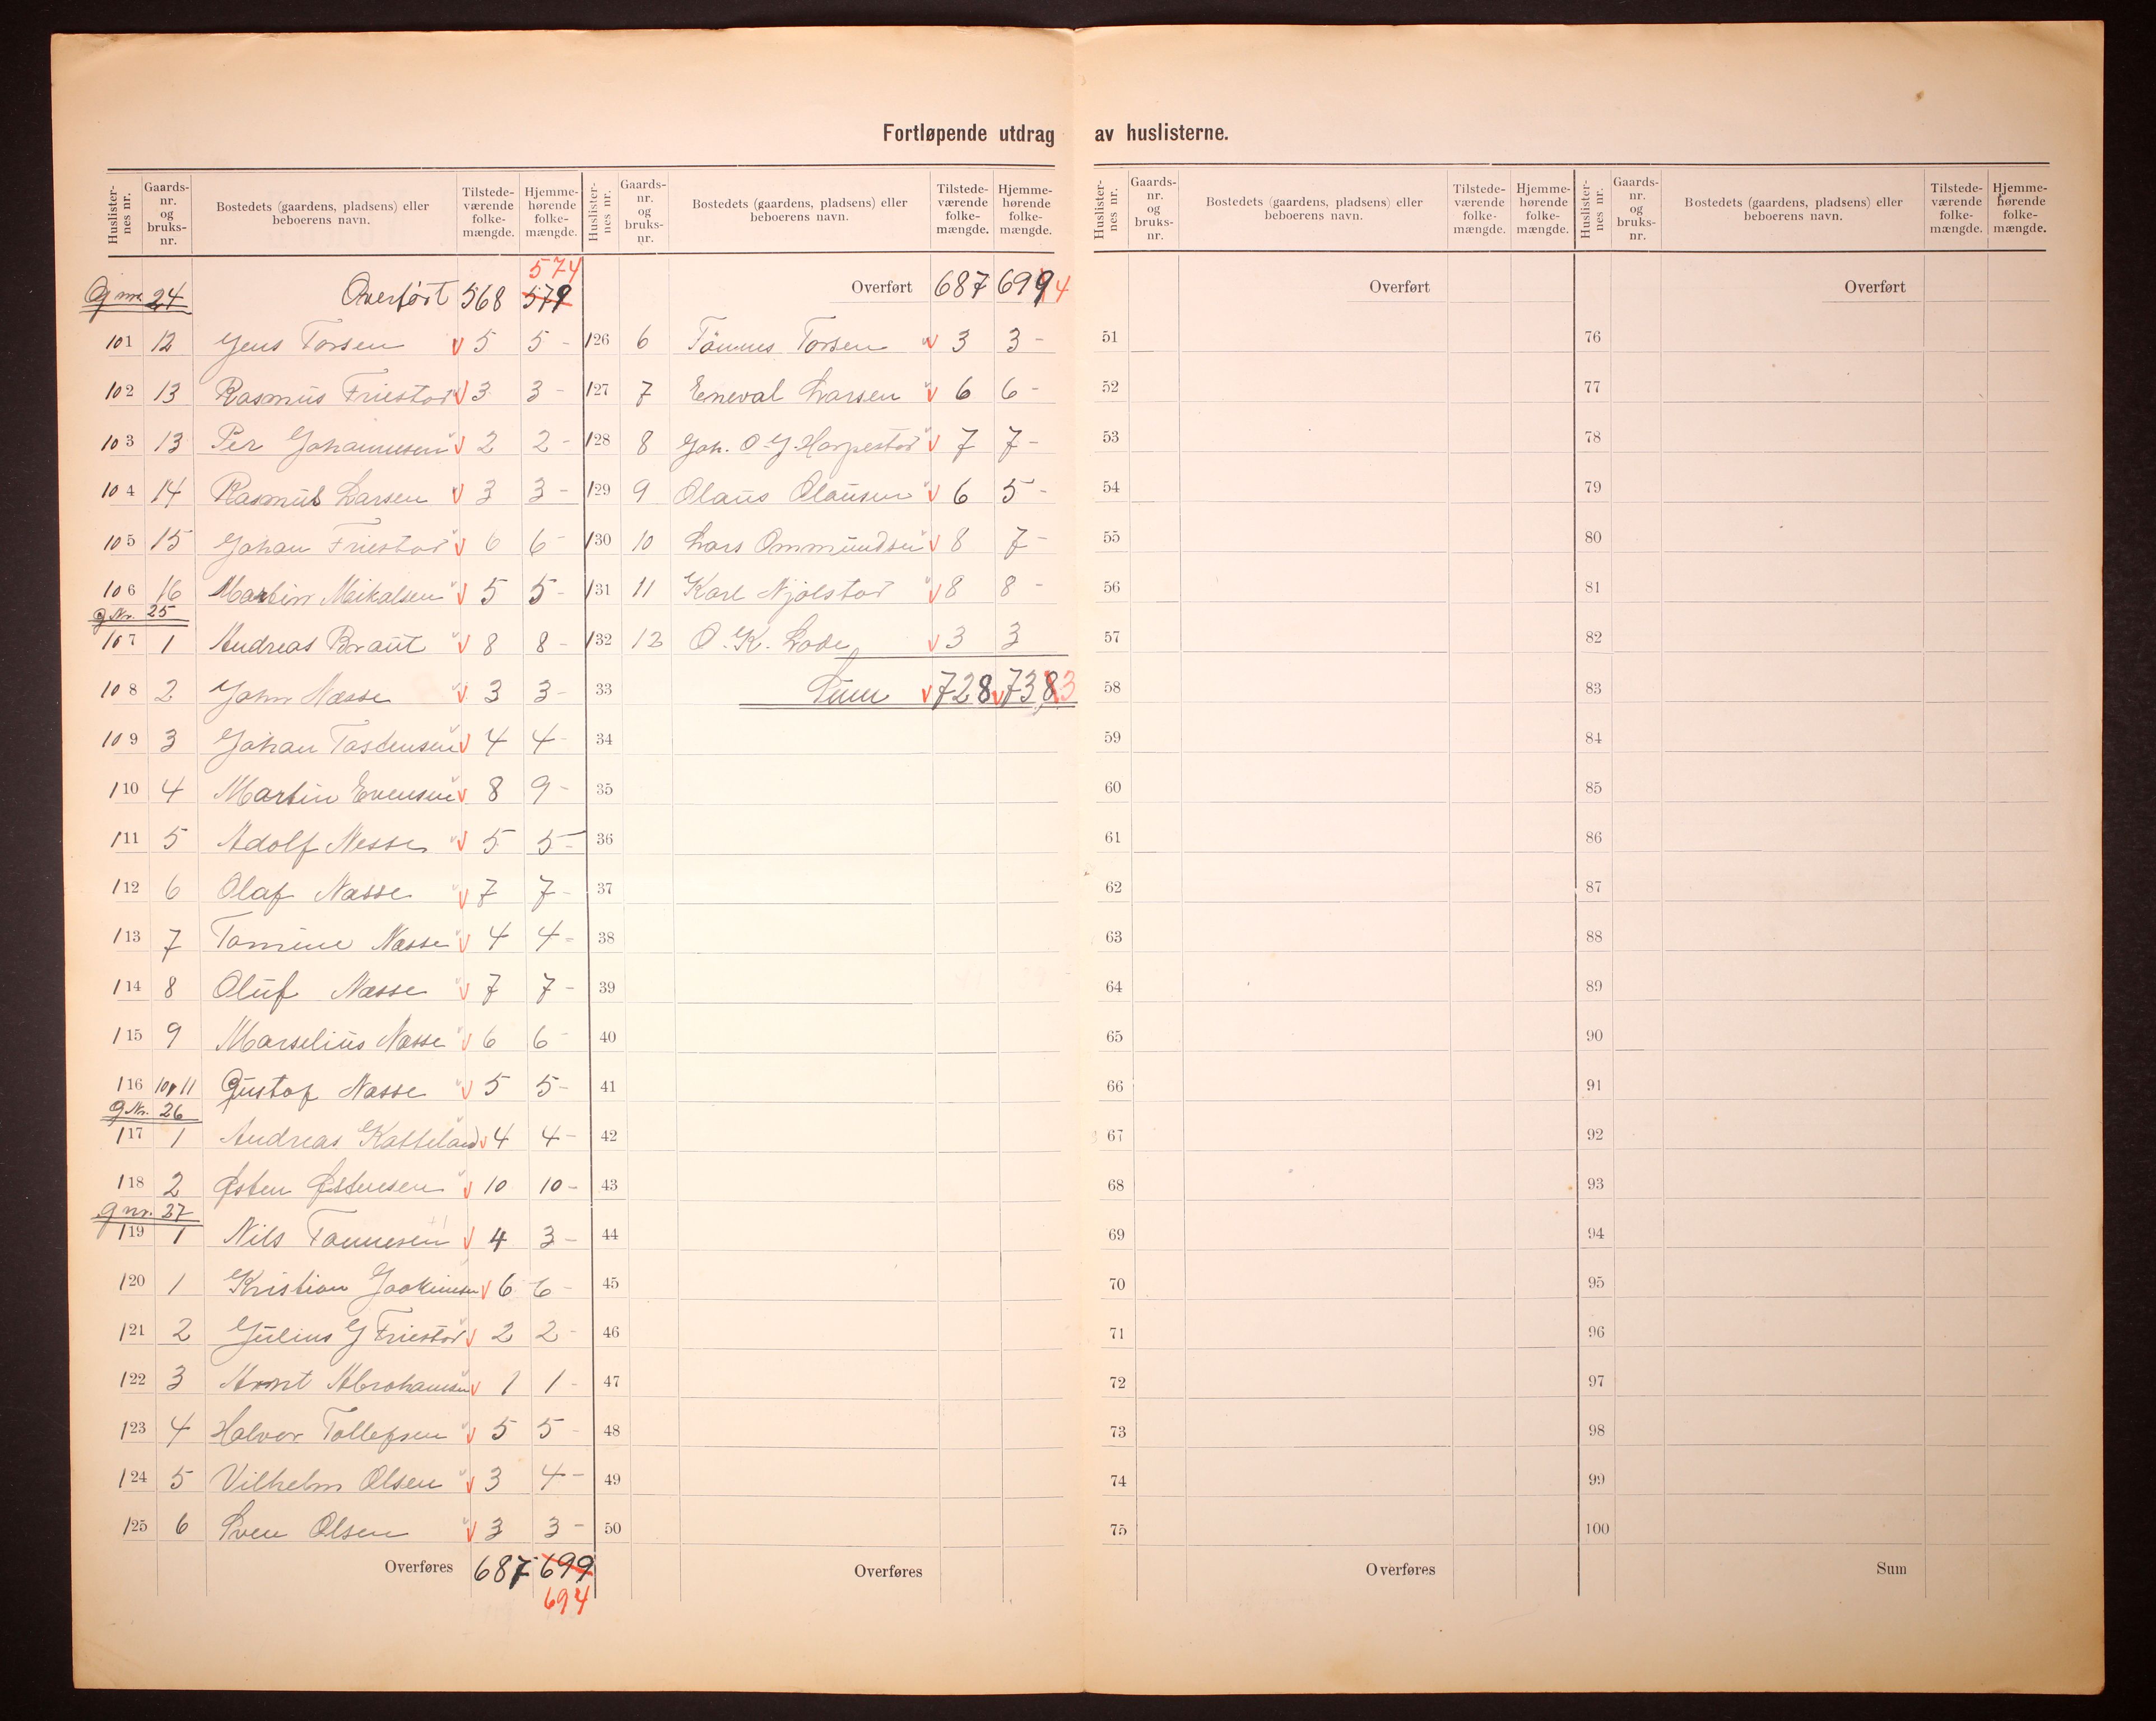 Fortløpende utdrag av huslisterne.
Huslisternes nr. Gaards-nr. og bruks-nr. Bostedets (gaardens, pladsens) eller beboerens navn. Tilstedeværende folkemængde. Hjemmehørende folkemængde.
574
G nr. 24 Overført 568 579
101 12 Jens Torsen v 5 5 -
102 13 Rasmus Friestad v 3 3 -
103 13 Per Johannesen v 2 2 -
104 14 Rasmus Larsen v 3 3 -
105 15 Johan Friestad v 6 6 -
106 16 Martin Mikalsen v 5 5 -
G Nr. 25
107 1 Andreas Braut v 8 8 -
108 2 John Næsse v 3 3 -
109 3 Johan Tostensen v 4 4 -
110 4 Martin Evensen v 8 9 -
111 5 Adolf Nesse v 5 5 -
112 6 Olaf Næsse v 7 7 -
113 7 Tomine Næsse v 4 4 -
114 8 Oluf Næsse v 7 7 -
115 9 Marselius Næsse v 6 6 -
116 10 11 Gustaf Næsse v 5 5 -
G Nr. 26
117 1 Andreas Katteland v 4 4 -
118 2 Østen Østensen v 10 10 -
G nr. 27
119 1 Nils Tønnesen v 4 3 -
120 1 Kristian Joakimsen v 6 6 -
121 2 Julius G Friestad v 2 2 -
122 3 Arnt Abrahamsen v 1 1 -
123 4 Halvor Tollefsen v 5 5 -
124 5 Vilhelm Olsen v 3 4 -
125 6 Sven Olsen v 3 3 -
Overføres 687 699
694
Huslisternes nr. Gaards-nr. og bruks-nr. Bostedets (gaardens, pladsens) eller beboerens navn. Tilstedeværende folkemængde. Hjemmehørende folkemængde.
Overført 687 699 4
126 6 Tönnes Torsen v 3 3 -
127 7 Eneval Larsen v 6 6 -
128 8 Joh. O. G. Harpestad v 7 7 -
129 9 Olaus Olausen v 6 5 -
130 10 Lars Ommundsen v 8 7 -
131 11 Karl Njolstad v 8 8 -
132 12 O. K. Lode v 3 3
33 Sum v 728 v 738 3
34
35
36
37
38
39
40
41
42
43
44
45
46
47
48
49
50
Overføres
Huslisternes nr. Gaards-nr. og bruks-nr. Bostedets (gaardens, pladsens) eller beboerens navn. Tilstedeværende folkemængde. Hjemmehørende folkemængde.
Overført
51
52
53
54
55
56
57
58
59
60
61
62
63
64
65
66
67
68
69
70
71
72
73
74
75
Overføres
Huslisternes nr. Gaards-nr. og bruks-nr. Bostedets (gaardens, pladsens) eller beboerens navn. Tilstedeværende folkemængde. Hjemmehørende folkemængde.
Overført
76
77
78
79
80
81
82
83
84
85
86
87
88
89
90
91
92
93
94
95
96
97
98
99
100
Sum